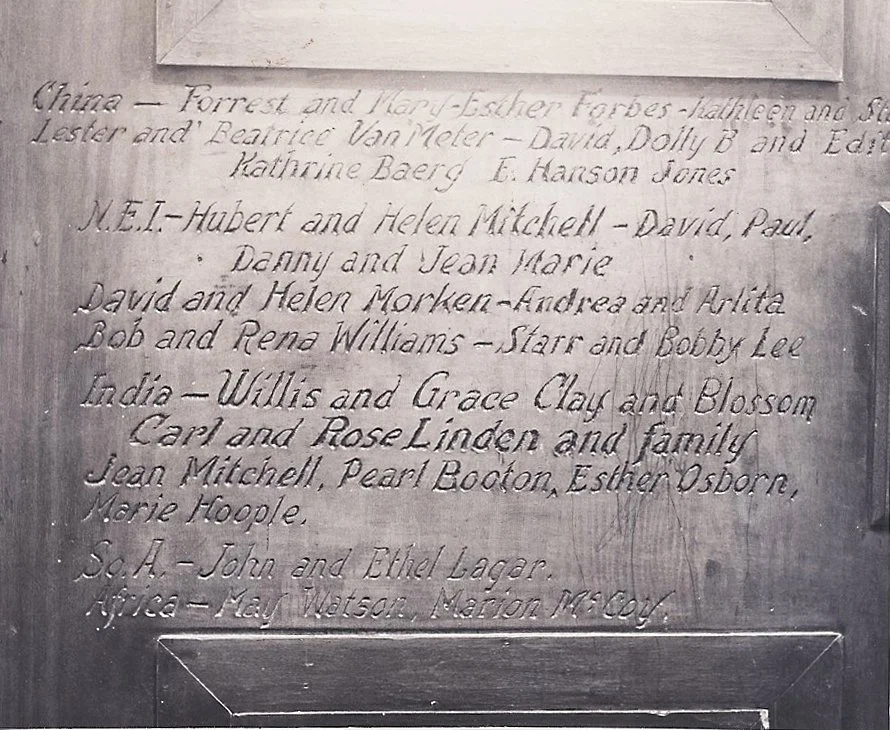 China – Forrest and Mary-Esther Forbes - Kathleen and
Lester and Beatrice VanMeter – David, Dolly B and
Kathrine Baerg E. Hanson Jones
N.E.I. – Hubert and Helen Mitchell – David, Paul,
Danny and Jean Marie
David and Helen Morken – Andrea and Arlita
Bob and Rena Williams – Starr and Bobby Lee
India – Willis and Grace Clay and Blossom
Carl and Rose Linden and family
Jean Mitchell, Pearl Booton, Esther Osborn,
Marie Hoople.
So. A. – John and Ethel Lagar.
Africa – May Watson, Marion McCoy.